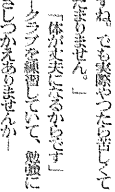 すね。でも実際やつたら苦しくて
たまりません。」
「体が丈夫になるからです」
―クラブを練習していて、勉強に
さしつかえありませんか―